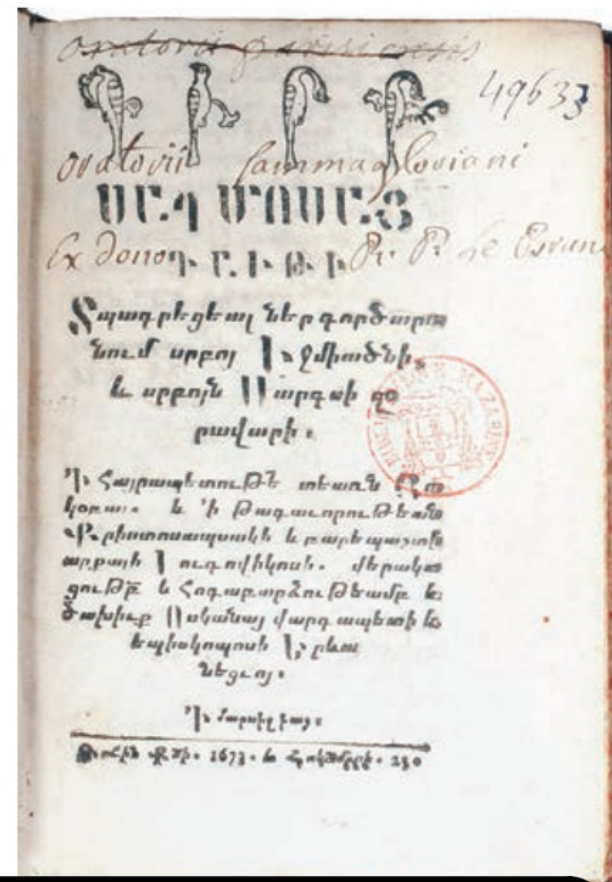 oratorii parisiensis
49633
oratorii Sammagloriani
ՍԱՂ ՄՈՍԱՑ
Ex dono ԴԱՒԹԻ P. Le Brun
Տպագրեցեալ ներգործարա
նում սրբոյ Էջմիածնի,
և սրբոյն Սարգսի զօ
րավարի։
Ի Հայրապետութե տեառն Յա
կօբայ. և ՚ի թագաւորութեան
Քրիստոսապսակի և բարեպաշտի
արքայի Լուդովիկոսի. վերակա
ցութբ և հոգաբարձութեամբ և
ծախիւք Ոսկանայ վարդապետի և
եպիսկոպոսի Երևա
նեցւոյ։
Ի մարսիլիայ։
1673. և